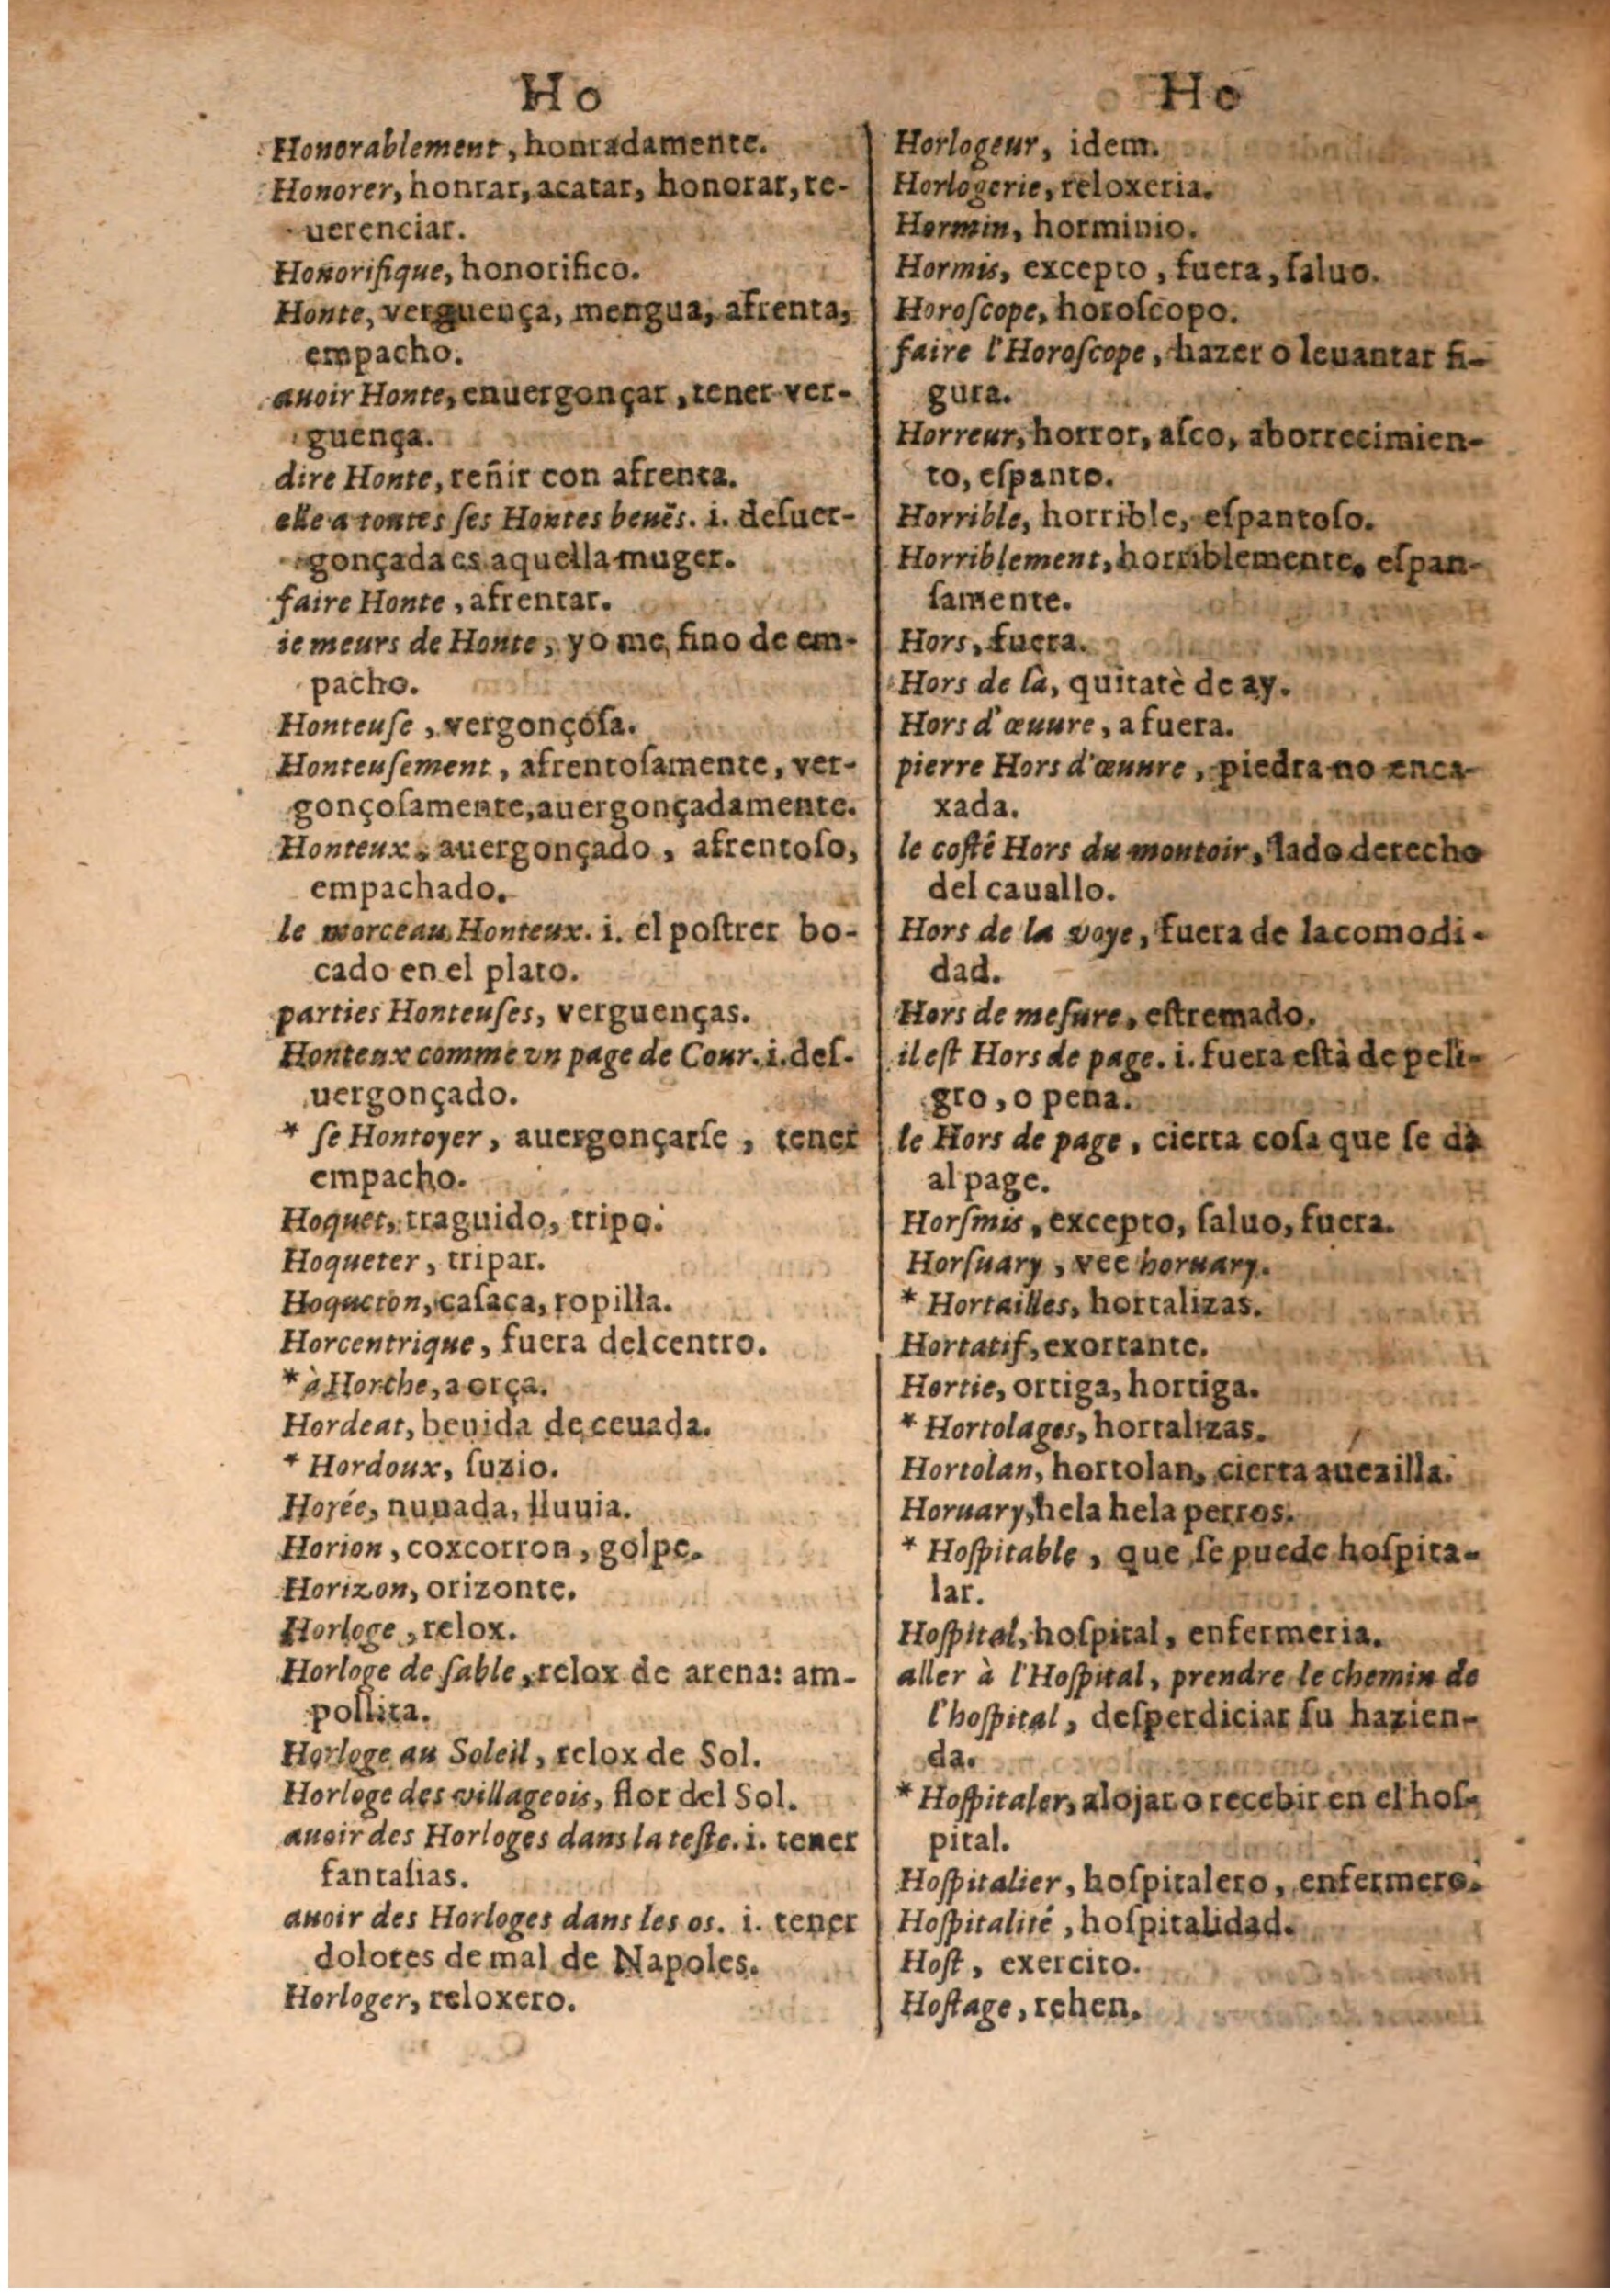 Ho
Honorablement, honradamente.
Honorer, honrar, acatar, honorar, re-
uerenciar.
Honorifique, honorifico.
Honte, verguença, mengua, afrenta,
empacho.
auoir Honte, enuergonçar, tener ver-
guença.
dire Honte, reñir con afrenta.
elle a toutes ses Hontes beuës. i. deſuer-
gonçada es aquella muger.
faire Honte, afrentar.
ie meurs de Honte, yo me fino de em-
pacho.
Honteuſe, vergonçoſa.
Honteuſement, afrentoſamente, ver-
gonçoſamente, auergonçadamente.
Honteux, auergonçado, afrentoſo,
empachado.
le morceau Honteux. i. el poſtrer bo-
cado en el plato.
parties Honteuſes, verguenças.
Honteux comme vn page de Cour. i. deſ-
uergonçado.
* ſe Hontoyer, auergonçarſe, tener
empacho.
Hoquet, traguido, tripo.
Hoqueter, tripar.
Hoqueton, caſaca, ropilla.
Horcentrique, fuera del centro.
* à Horche, a orça.
Hordeat, beuida de ceuada.
* Hordoux, ſuzio.
Horée, nuuada, lluuia.
Horion, coxcorron, golpe.
Horizon, orizonte.
Horloge, relox.
Horloge de ſable, relox de arena: am-
polſita.
Horloge au Soleil, relox de Sol.
Horloge des villageois, flor del Sol.
auoir des Horloges dans la teſte. i. tener
fantaſias.
auoir des Horloges dans les os. i. tener
dolores de mal de Napoles.
Horloger, reloxero.
Ho
Horlogeur, idem.
Horlogerie, reloxeria.
Hormin, horminio.
Hormis, excepto, fuera, ſaluo.
Horoſcope, horoſcopo.
faire l'Horoſcope, hazer o leuantar fi-
gura.
Horreur, horror, aſco, aborrecimien-
to, eſpanto.
Horrible, horrible, eſpantoſo.
Horriblement, horriblemente. eſpan-
ſamente.
Hors, fuera.
Hors de là, quitatè de ay.
Hors d'œuure, a fuera.
pierre Hors d'œuure, piedra no enca-
xada.
le coſté Hors du montoir, lado derecho
del cauallo.
Hors de la voye, fuera de la comodi-
dad.
Hors de meſure, eſtremado.
il eſt Hors de page. i. fuera eſtà de peli-
gro, o pena.
le Hors de page, cierta coſa que ſe dà
al page.
Horſmis, excepto, ſaluo, fuera.
Horſuary, vee horuary.
* Hortailles, hortalizas.
Hortatif, exortante.
Hortie, ortiga, hortiga.
* Hortolages, hortalizas.
Hortolan, hortolan, cierta auezilla.
Horuary, hela hela perros.
* Hoſpitable, que ſe puede hoſpita-
lar.
Hoſpital, hoſpital, enfermeria.
aller à l'Hoſpital, prendre le chemin de
l'hoſpital, deſperdiciar ſu hazien-
da.
* Hoſpitaler, alojar o recebir en el hoſ-
pital.
Hoſpitalier, hoſpitalero, enfermero.
Hoſpitalité, hoſpitalidad.
Hoſt, exercito.
Hoſtage, rehen.